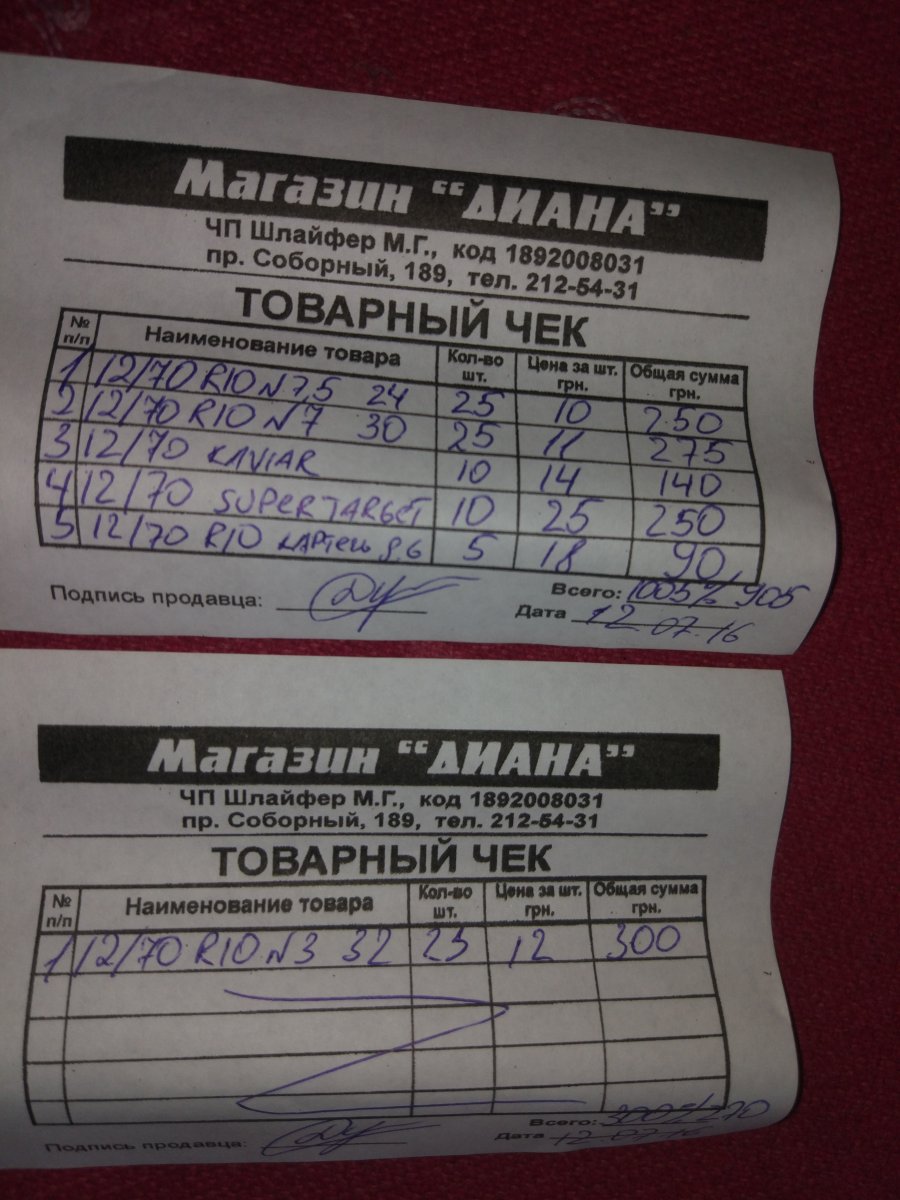 Магазин "ДИАНА"
ЧП Шлайфер М.Г., код 1892008031
пр. Соборный, 189, тел. 212-54-31
ТОВАРНЫЙ ЧЕК
№ п/п Наименование товара Кол-во шт. Цена за шт. грн. Общая сумма грн.
1 12/70 RIO N7,5 24 25 10 250
2 12/70 RIO N7 30 25 11 275
3 12/70 KAVIAR 10 14 140
4 12/70 SUPERTARGET 10 25 250
5 12/70 RIO картечь 5 18 90
Подпись продавца: Всего: 1005 905
Дата 12.07.16
Магазин "ДИАНА"
ЧП Шлайфер М.Г., код 1892008031
пр. Соборный, 189, тел. 212-54-31
ТОВАРНЫЙ ЧЕК
№ п/п Наименование товара Кол-во шт. Цена за шт. грн. Общая сумма грн.
1 12/70 RIO N3 32 25 12 300
Всего: 300 270
Подпись продавца: Дата 12.07.16